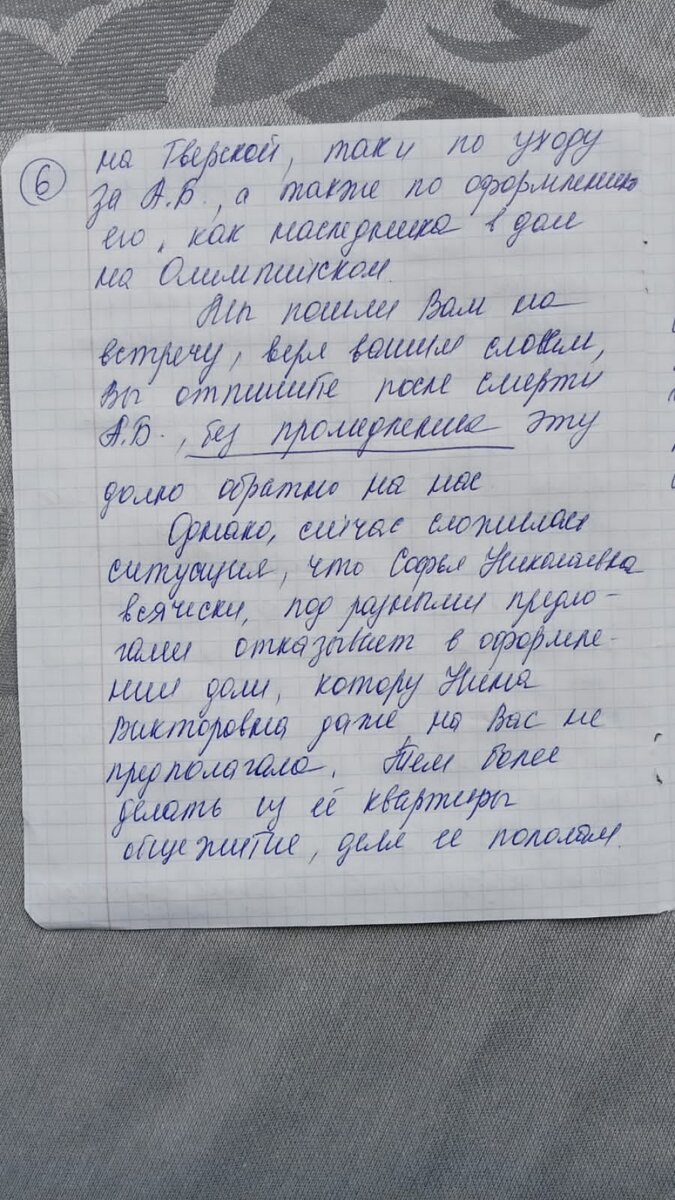 6
на Тверской, так и по уходу
за А.Б., а также по оформлению
его, как наследника в доли
на Олимпийском.
Мы пошли Вам на
встречу, веря вашим словам,
Вы отпишите после смерти
А.Б., без промедления эту
долю обратно на нас.
Однако, сейчас сложилась
ситуация, что Софья Николаевна
всячески, под разными предло-
гами отказывает в оформле-
нии доли, котору Нина
Викторовна даже на Вас не
предполагала. Тем более
делать из её квартиры
общежитие, деля ее пополам.